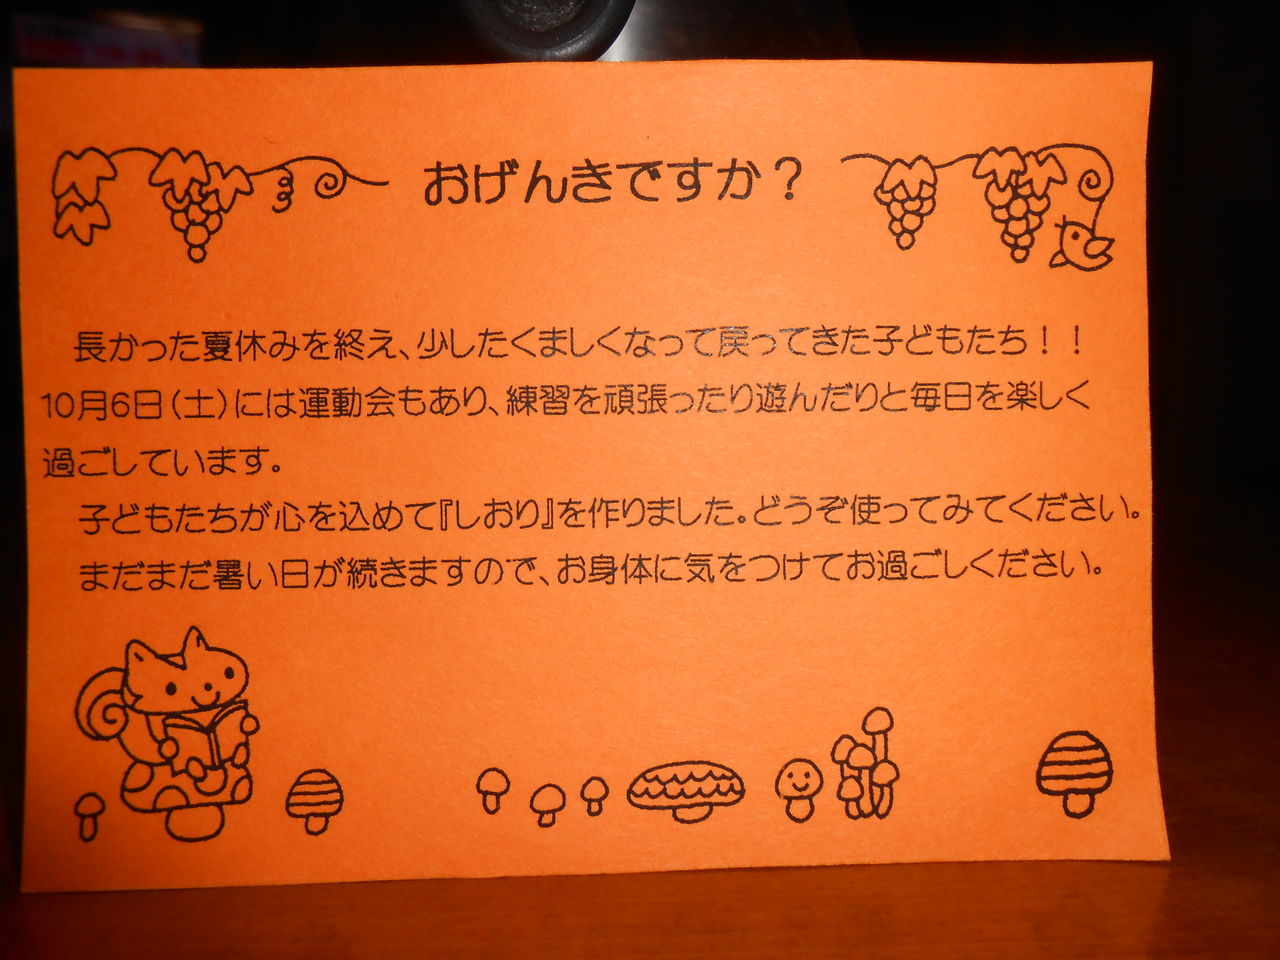 おげんきですか？
長かった夏休みを終え、少したくましくなって戻ってきた子どもたち！！
10月6日（土）には運動会もあり、練習を頑張ったり遊んだりと毎日を楽しく
過ごしています。
子どもたちが心を込めて『しおり』を作りました。どうぞ使ってみてください。
まだまだ暑い日が続きますので、お身体に気をつけてお過ごしください。